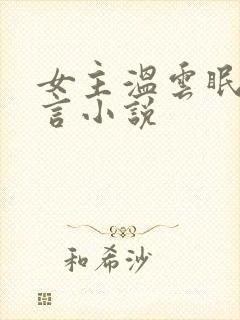 女主溫雲眠
言小說
和希沙